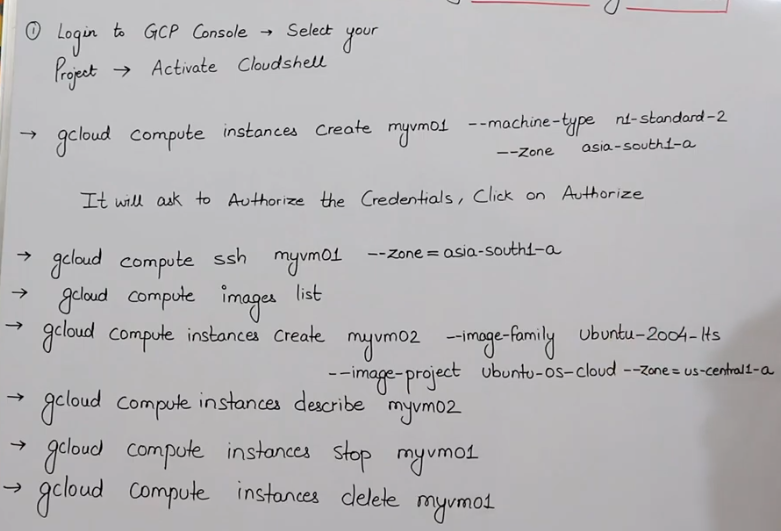 ① Login to GCP Console → Select your
Project → Activate Cloudshell
→ gcloud compute instances create myvm01 --machine-type n1-standard-2
--zone asia-south1-a
It will ask to Authorize the Credentials, Click on Authorize
→ gcloud compute ssh myvm01 --zone = asia-south1-a
→ gcloud compute images list
→ gcloud compute instances create myvm02 --image-family ubuntu-2004-lts
--image-project ubuntu-os-cloud --zone = us-central1-a
→ gcloud compute instances describe myvm02
→ gcloud compute instances stop myvm01
→ gcloud compute instances delete myvm01